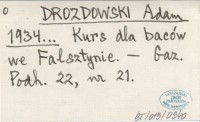 0
DROZDOWSKI Adam
1934... Kurs dla baców
we Falsztynie. — Gaz.
Podh. 22, nr 21.
BT/019/0940